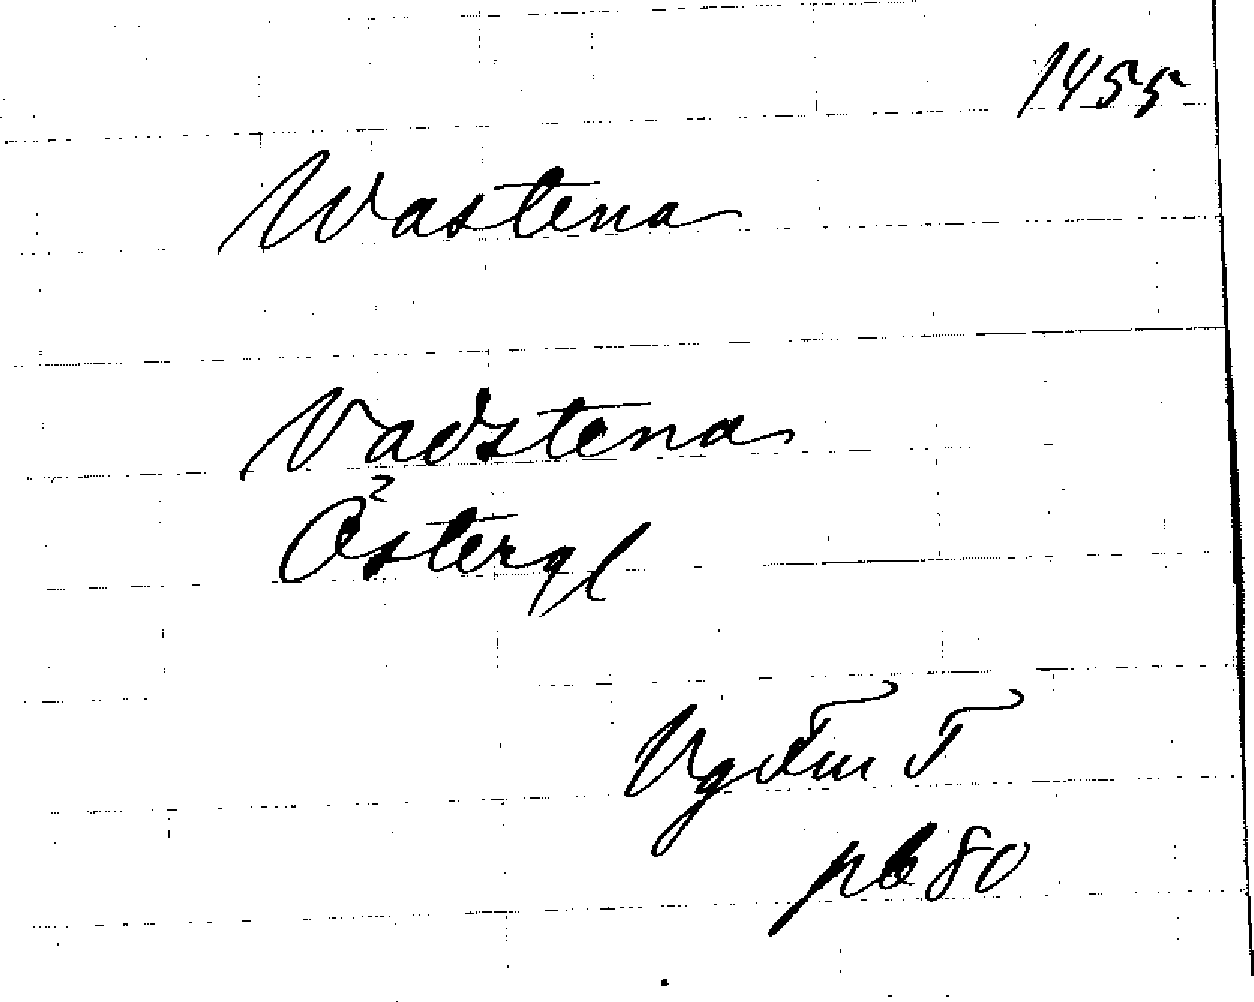 1455
Wastena
Vadstena
Östergl
VgFmT
p 80